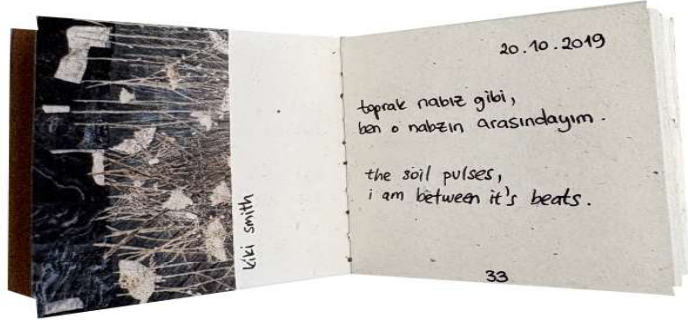 kiki smith
20.10.2019
toprak nabız gibi,
ben o nabzın arasındayım.
the soil pulses,
i am between it's beats.
33